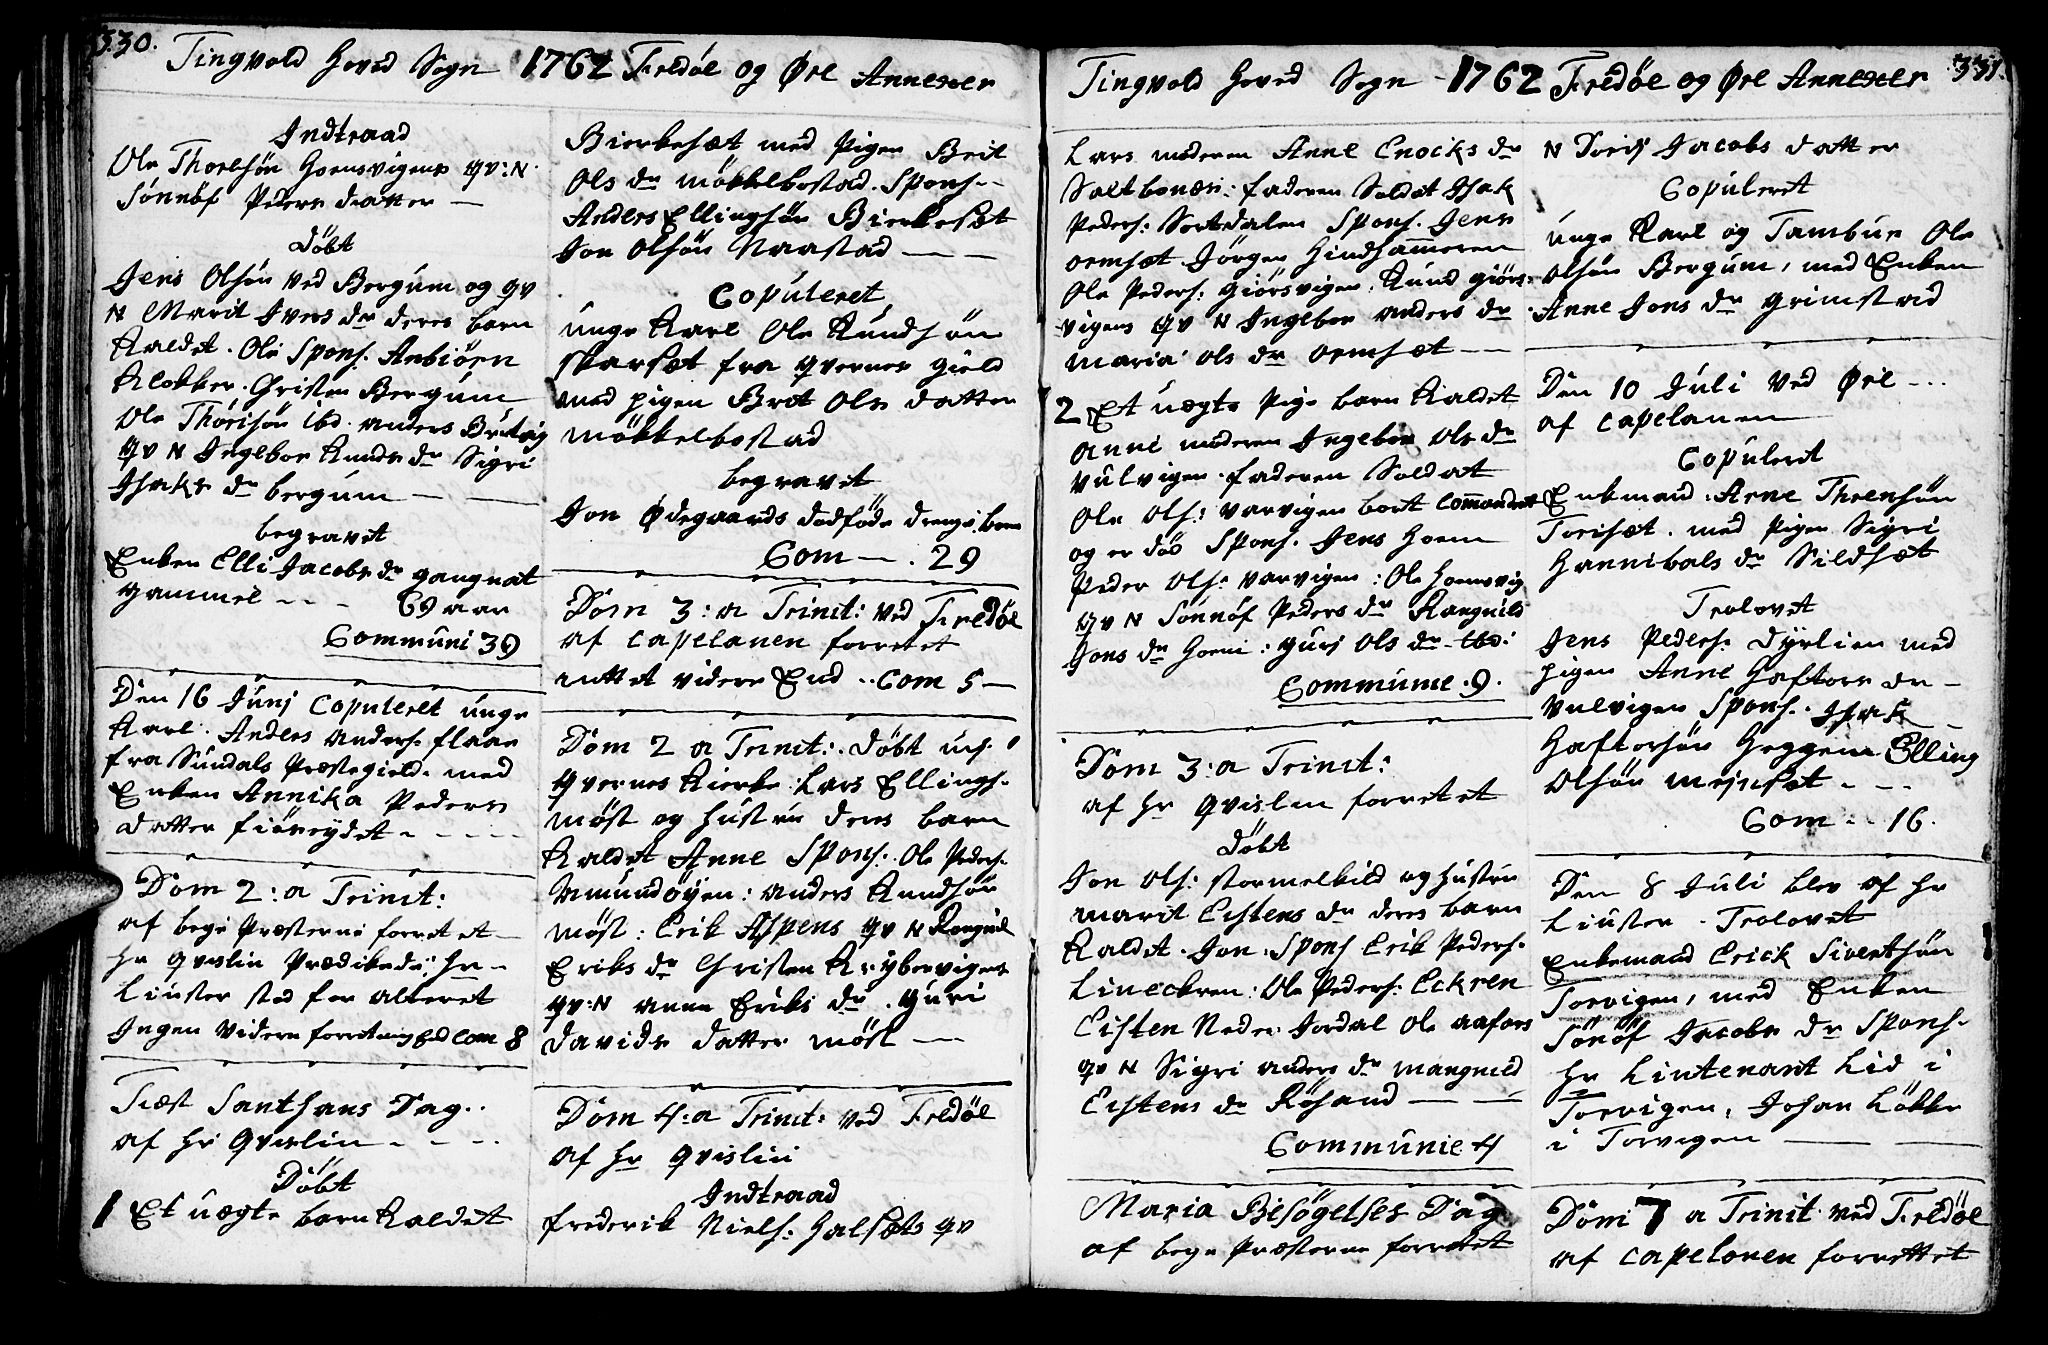 330. Tingvold Hoved Sogn 1762 Fredöe og Øre Annexer
Indtraad
Ole Thoresön Hoensvigens qv: N
Sönnöf Peders datter —
Döbt
Jens Olsön ved Bergum og qv
N Marit Ivers dr deres barn
Kaldet. Ole Spons. Anbiörn
Klokker. Christen Bergum
Ole Thorisön ibd. anders
qv N Ingebor Knuds dr Sigri
Isaks dr bergum — —
begravet
Enken Elli Jacobs dr gangnat
gammel - - - 69 aar
Communi 39
Den 16 Junj Copuleret unge
Karl. Anders anders. flaae
fra Sundals Præstegield. med
Enken Annika Peders
datter fiöreydet - - - -
Dom 2: a Trinit:
af bege Præsterne forretet
hr Qvislin Prædikede: hr -
Liuster stod for alteret
Ingen videre forretning End Com 8
Fæst Santhans Dag..
af hr Qvislin - - -
Döbt
1 Et uægte barn kaldet
Bierkesæt med Pigen Brit
Ols dr möckelbostad. Spons--
Anders Ellingsön Bierkesæt
Jon Olsön Naastad — —
Copuleret
unge Karl Ole Knudsön
skarsæt fra qvernes gield
med pigen Brit Ols datter
möckelbostad
begravet
Jon Ødegaards dödföde drenge barn
Com —. 29
Dom 3: a Trinit: ved Fredöe
af capelanen forretet
intet videre End .. com 5 —
Dom 2 a Trinit: Döbt udj
qvernes Kierke: Lars Ellings.
möst og hustru deres barn
Kaldet Anne Spons: Ole Peders.
Amundöyen: anders Knudsön
möst: Erik Aspens qv N Rangnil
Eriks dr Christen Krybervigens
qv: N anne Eriks dr. Guri
Davids datter möst —
Dom 4: a Trinit: ved Fredöe
af hr Qvislin
Indtraad
frederik Niels. Halsets qv
Tingvold Hoved Sogn - 1762 Fredöe og Øre Annexer 331.
Lars moderen Anne Enocks dr
Saltbonæs: faderen Soldat Isak
Peders: Sertdalen Spons. Jens
ormsæt Jörgen Hindhammeren
Ole Peders: giörsvigen. Knud giörs-
vigens qv N Ingebor anders dr
maria ols dr ormsæt —
2 Et uægte Pige barn kaldet
anne moderen Ingebor Ols dr
vulvigen. faderen Soldat
Ole Ols: varvigen bort Commandret
og er död Spons. Jens hoem
Peder Ols: varvigen: Ole Hoemsvig
qv N Sönnöf Peders dr Rangnild
Jons dr hoem: guri Ols dr ibd:
Communie. 9.
Dom 3: a Trinit:
af hr Qvislin forretet
Döbt
Jon Ols: stormelkild og hustru
marit Eistens dr deres barn
Kaldet. Jon. Spons Erik Peders.
Lineckren: Ole Peders: Eckren
Eisten Neder Jordal Ole aafars
qv N Sigri anders dr mangnild
Eistens dr Rösand — —
Communie 4
Maria Besögelses Dag
af bege Præsterne forretet
N Torij Jacobs datter
Copuleret
unge Karl og Tambur Ole
olsön Bergum, med Enken
Anne Jons dr Grimstad
Den 10 Juli ved Øre - ..
af capelanen
Copuleret
Enkemand: Arne Thoensön
Torisæt. med Pigen Sigri
Hannibals dr Sildsæt
Trolovet
Jens Peders. Dyrlien med
pigen Anne Haftors dr -
Vulvigen Spons. Isak -
Haftorsön Heggem Elling
Olsön mejsæt - - -
Com - - 16.
Den 8 Juli blev af hr
Liuster. Trolovet
Enkemand Erick Sivertsön
Torvigen, med Enken
Sönöf Jacobs dr Spons.
hr Lieutenant Lid i
Torvigen, Johan Lökke
i Torvigen — —
Dom 7 a Trinit ved Fredöe
af capelanen forrettet